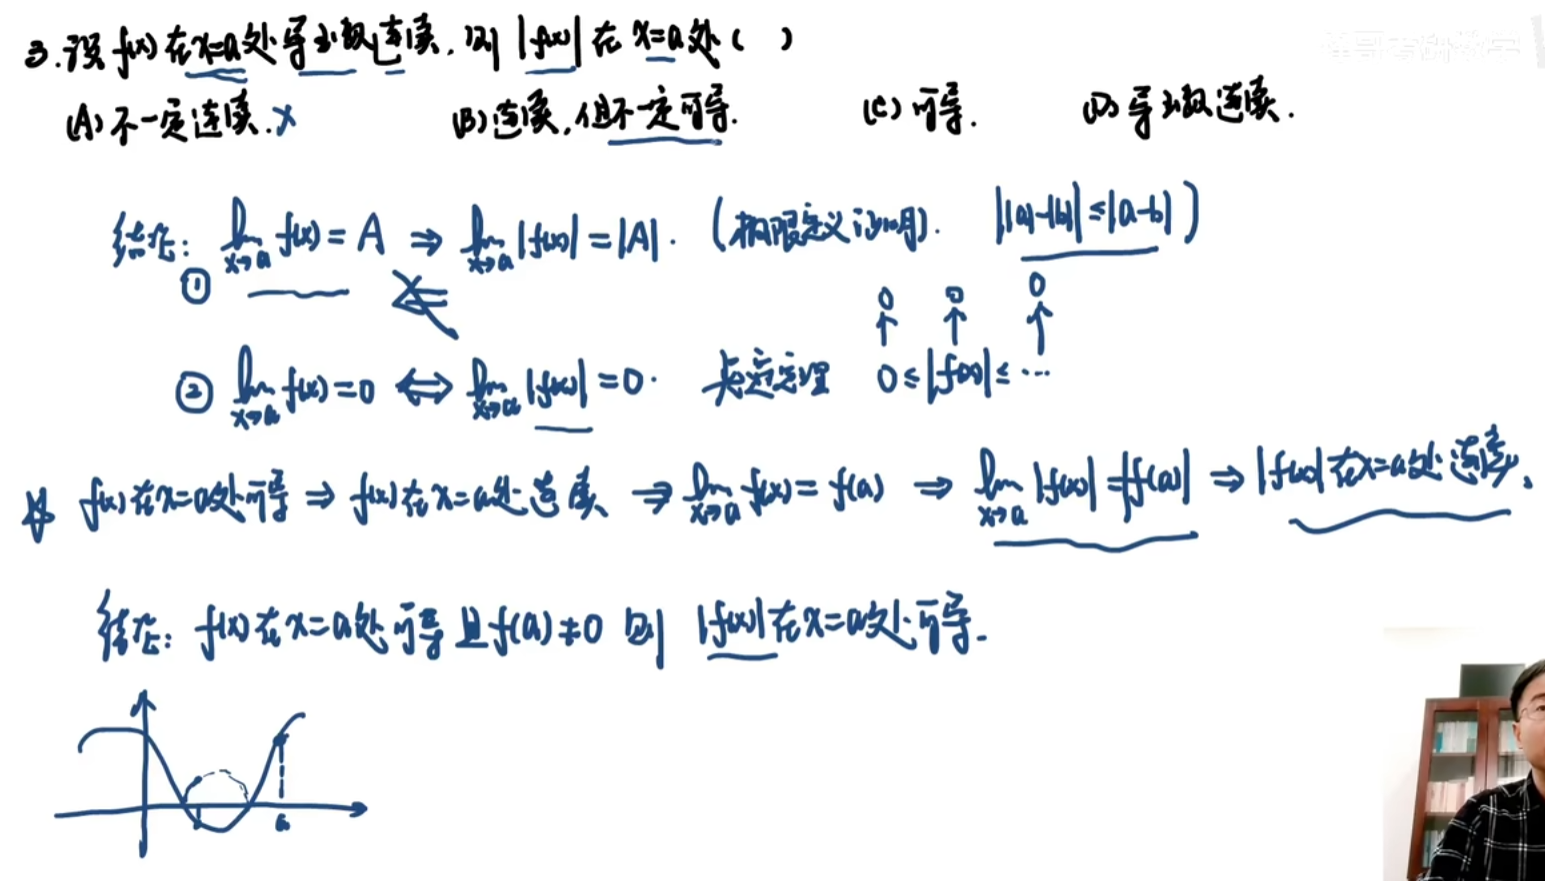 3. 设 f(x) 在 x=a 处导函数连续, 则 |f(x)| 在 x=a 处 ( )
(A) 不一定连续. × (B) 连续, 但不一定可导. (C) 可导. (D) 导函数连续.
结论: ① lim x→a f(x) = A ⇒ lim x→a |f(x)| = |A|. (极限定义证明). ||a|-|b|| ≤ |a-b| )
⇐
0 0 0
↑ ↑ ↑
② lim x→a f(x) = 0 ⇔ lim x→a |f(x)| = 0. 夹逼定理 0 ≤ |f(x)| ≤ ⋯
f(x) 在 x=a 处可导 ⇒ f(x) 在 x=a 处连续 ⇒ lim x→a f(x) = f(a) ⇒ lim x→a |f(x)| = |f(a)| ⇒ |f(x)| 在 x=a 处连续.
结论: f(x) 在 x=a 处可导 且 f(a) ≠ 0 则 |f(x)| 在 x=a 处可导.
a